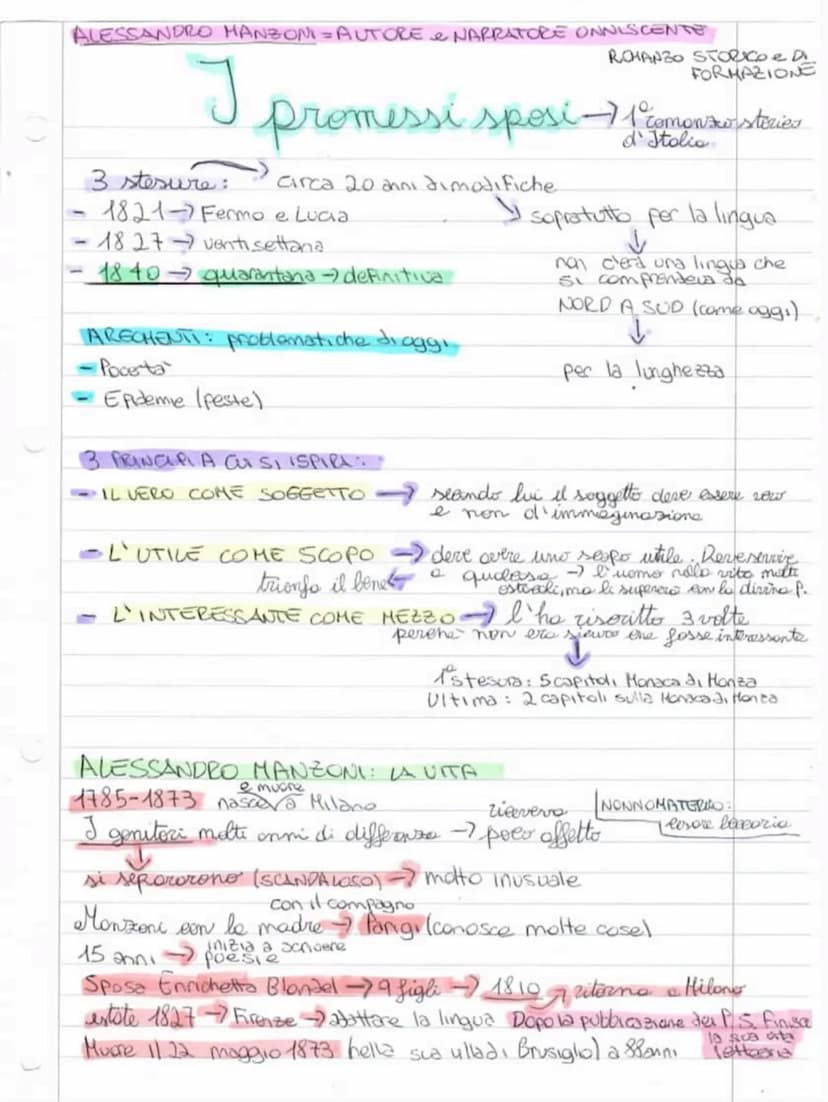 ALESSANDRO MANZONI = AUTORE e NARRATORE ONNISCENTE
ROMANZO STORICO e DI
FORMAZIONE
I promessi sposi → 1° romanzo storico
d'Italia
3 stesure: → circa 20 anni di modifiche
- 1821 → Fermo e Lucia
→ sopratutto per la lingua
- 1827 → ventisettana
- 1840 → quarantana → definitiva
non c'era una lingua che
si comprendeva da
NORD A SUD (come oggi)
per la lunghezza
ARGOMENTI: problematiche di oggi
- Povertà
- Epidemie (peste)
3 PRINCIPI A CUI SI ISPIRA:
- IL VERO COME SOGGETTO → secondo lui il soggetto deve essere vero
e non d'immaginazione
- L'UTILE COME SCOPO → deve avere uno scopo utile. Deve servire
a qualcosa → l'uomo nella vita molti
ostacoli, ma li supererà con la divina P.
trionfa il bene ←
- L'INTERESSANTE COME MEZZO → l'ha riscritto 3 volte
perché non era sicuro che fosse interessante
1ª stesura: 5 capitoli Monaca di Monza
Ultima: 2 capitoli sulla Monaca di Monza
ALESSANDRO MANZONI: LA VITA
1785-1873 nasce e muore a Milano
I genitori molti anni di differenza → riceveva poco affetto
NONNO MATERNO:
Cesare Beccaria
si separarono (SCANDALOSO) → molto inusuale
con il compagno
Manzoni con la madre → Parigi (conosce molte cose)
15 anni → inizia a scrivere
poesie
Sposa Enrichetta Blondel → 9 figli → 1810 → ritorna a Milano
estate 1827 → Firenze → adattare la lingua Dopo la pubblicazione dei P. S. finisce
la sua vita
letteraria
Muore il 22 maggio 1873 (nella sua villa di Brusiglio) a 88 anni